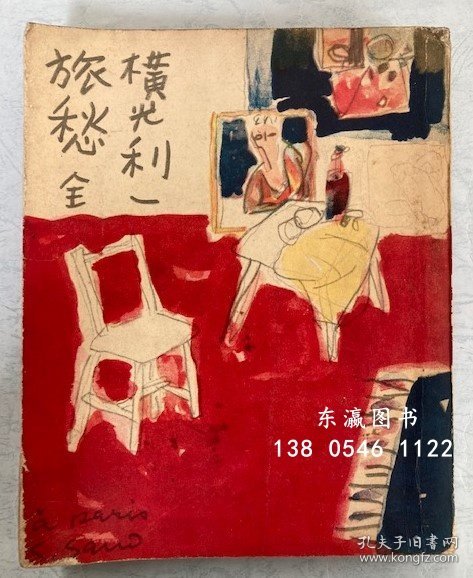 横光利一
旅愁 全
东瀛图书
138 0546 1122
à Paris
S. Sano
孔夫子旧书网
www.kongfz.com